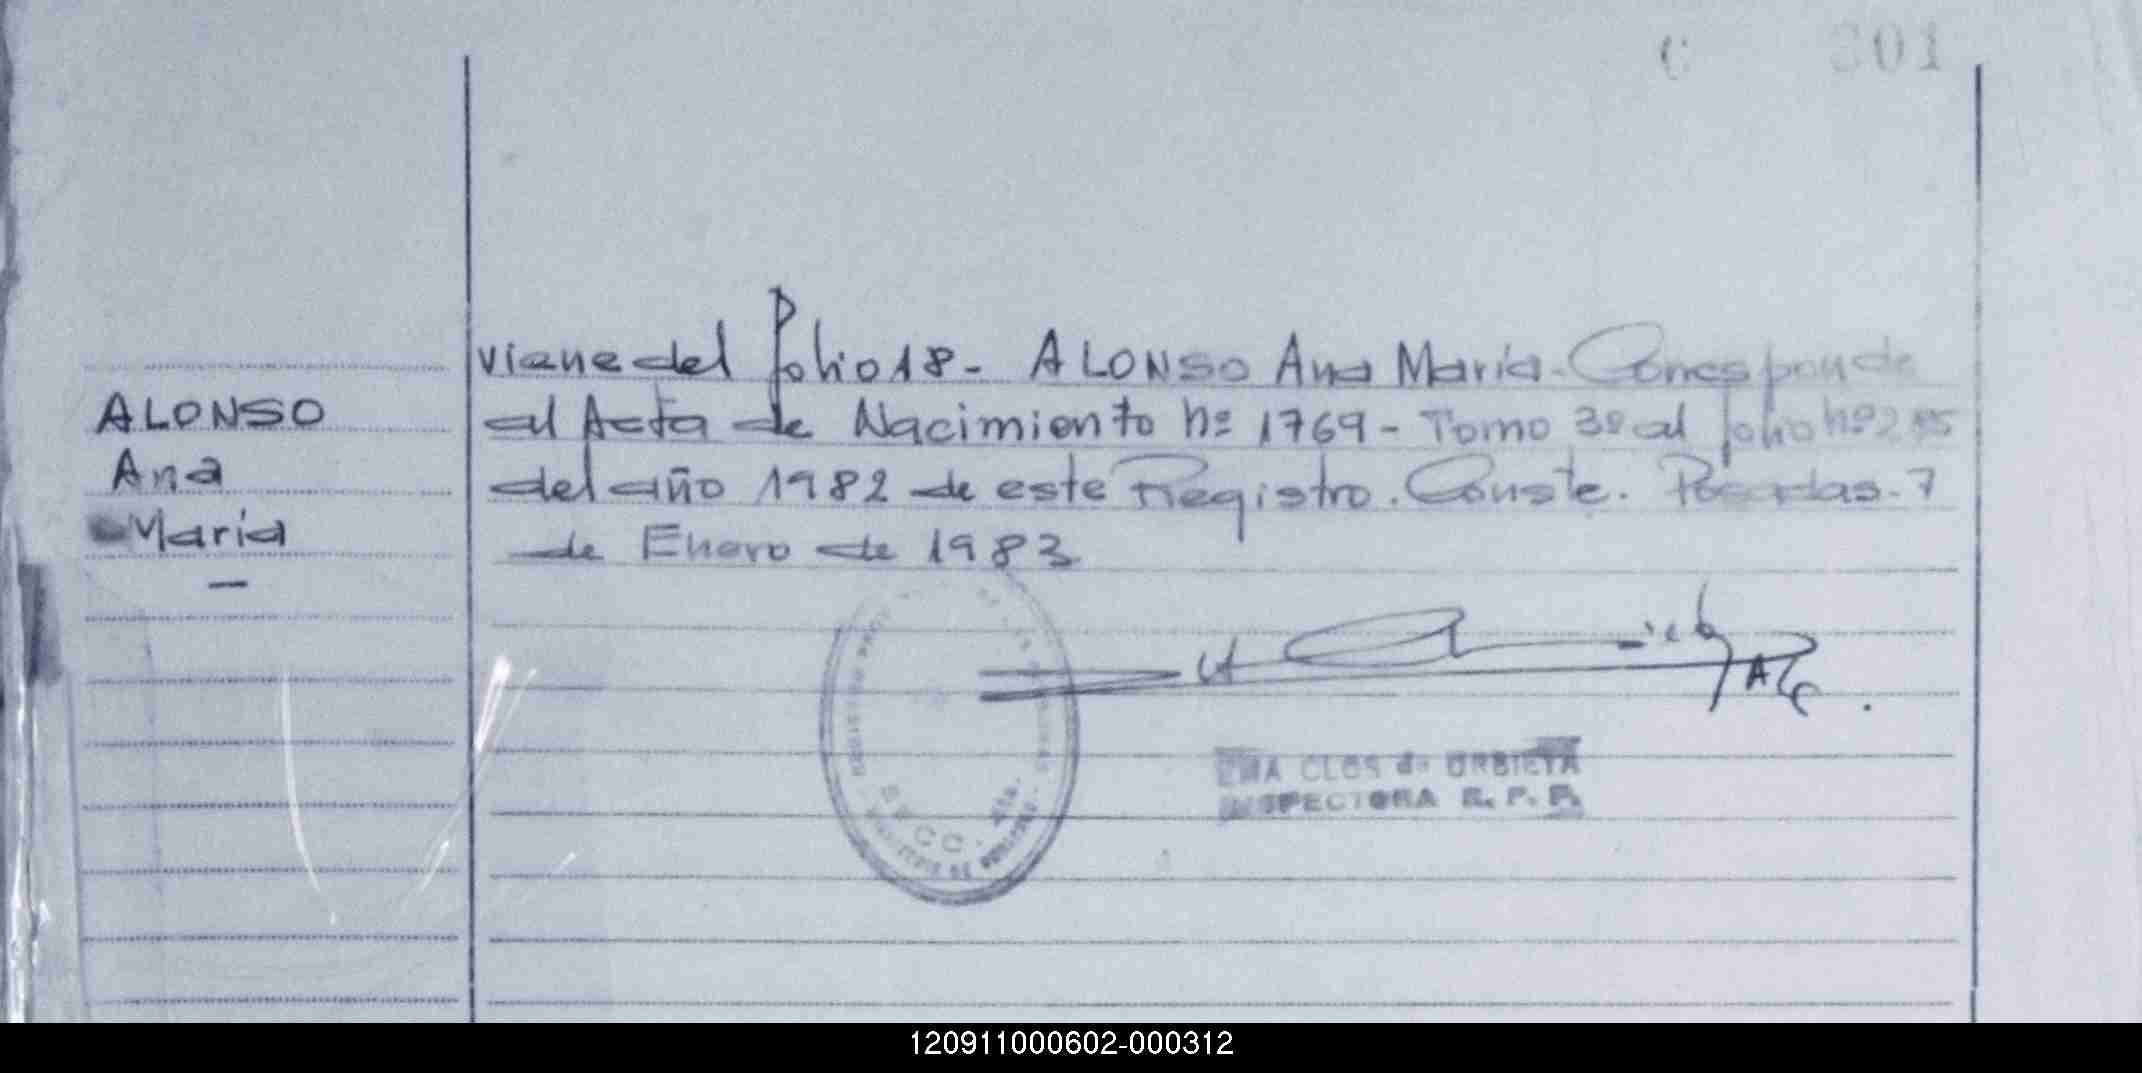 301
viene del folio 18 - ALONSO Ana María - Corresponde
ALONSO
al Acta de Nacimiento nº 1769 - Tomo 3º al folio nº
Ana
del año 1982 de este Registro. Conste. Posadas - 7
María
de Enero de 1983
CLOS de URBIETA
INSPECTORA R. P. P.
120911000602-000312